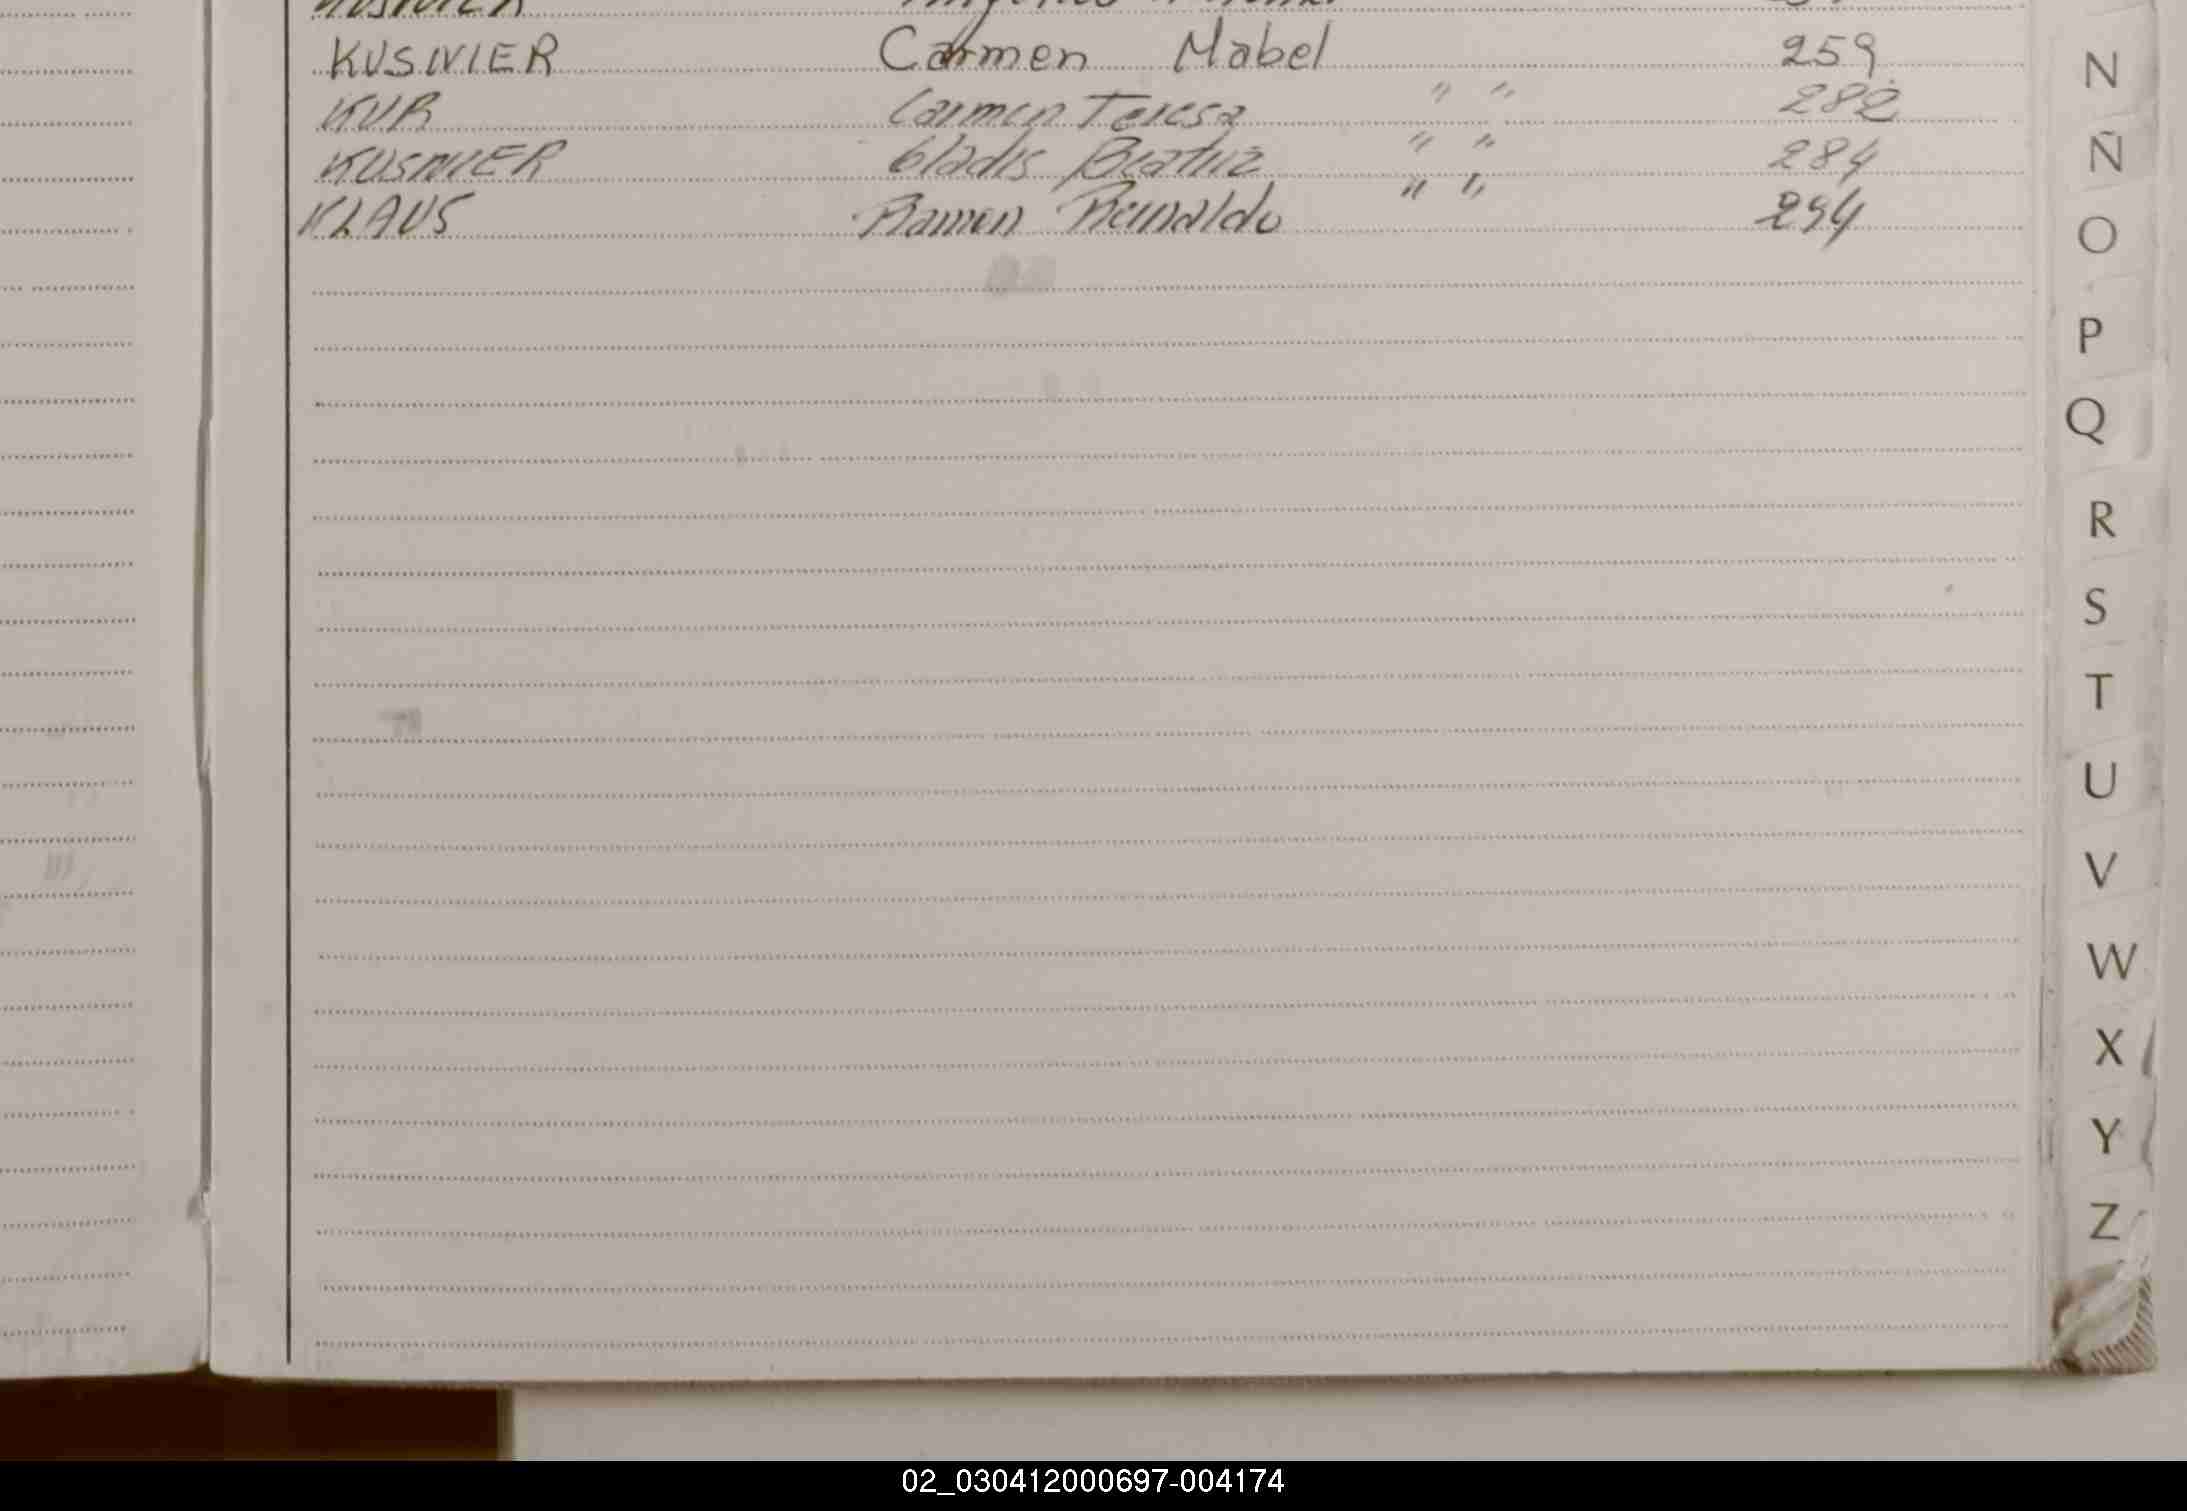 KUSNIER Carmen Mabel 259
KUR Carmen Teresa " " 282
KUSNIER Gladis Beatriz " " 284
KLAUS Ramon Reinaldo " " 294
N
Ñ
O
P
Q
R
S
T
U
V
W
X
Y
Z
02_030412000697-004174